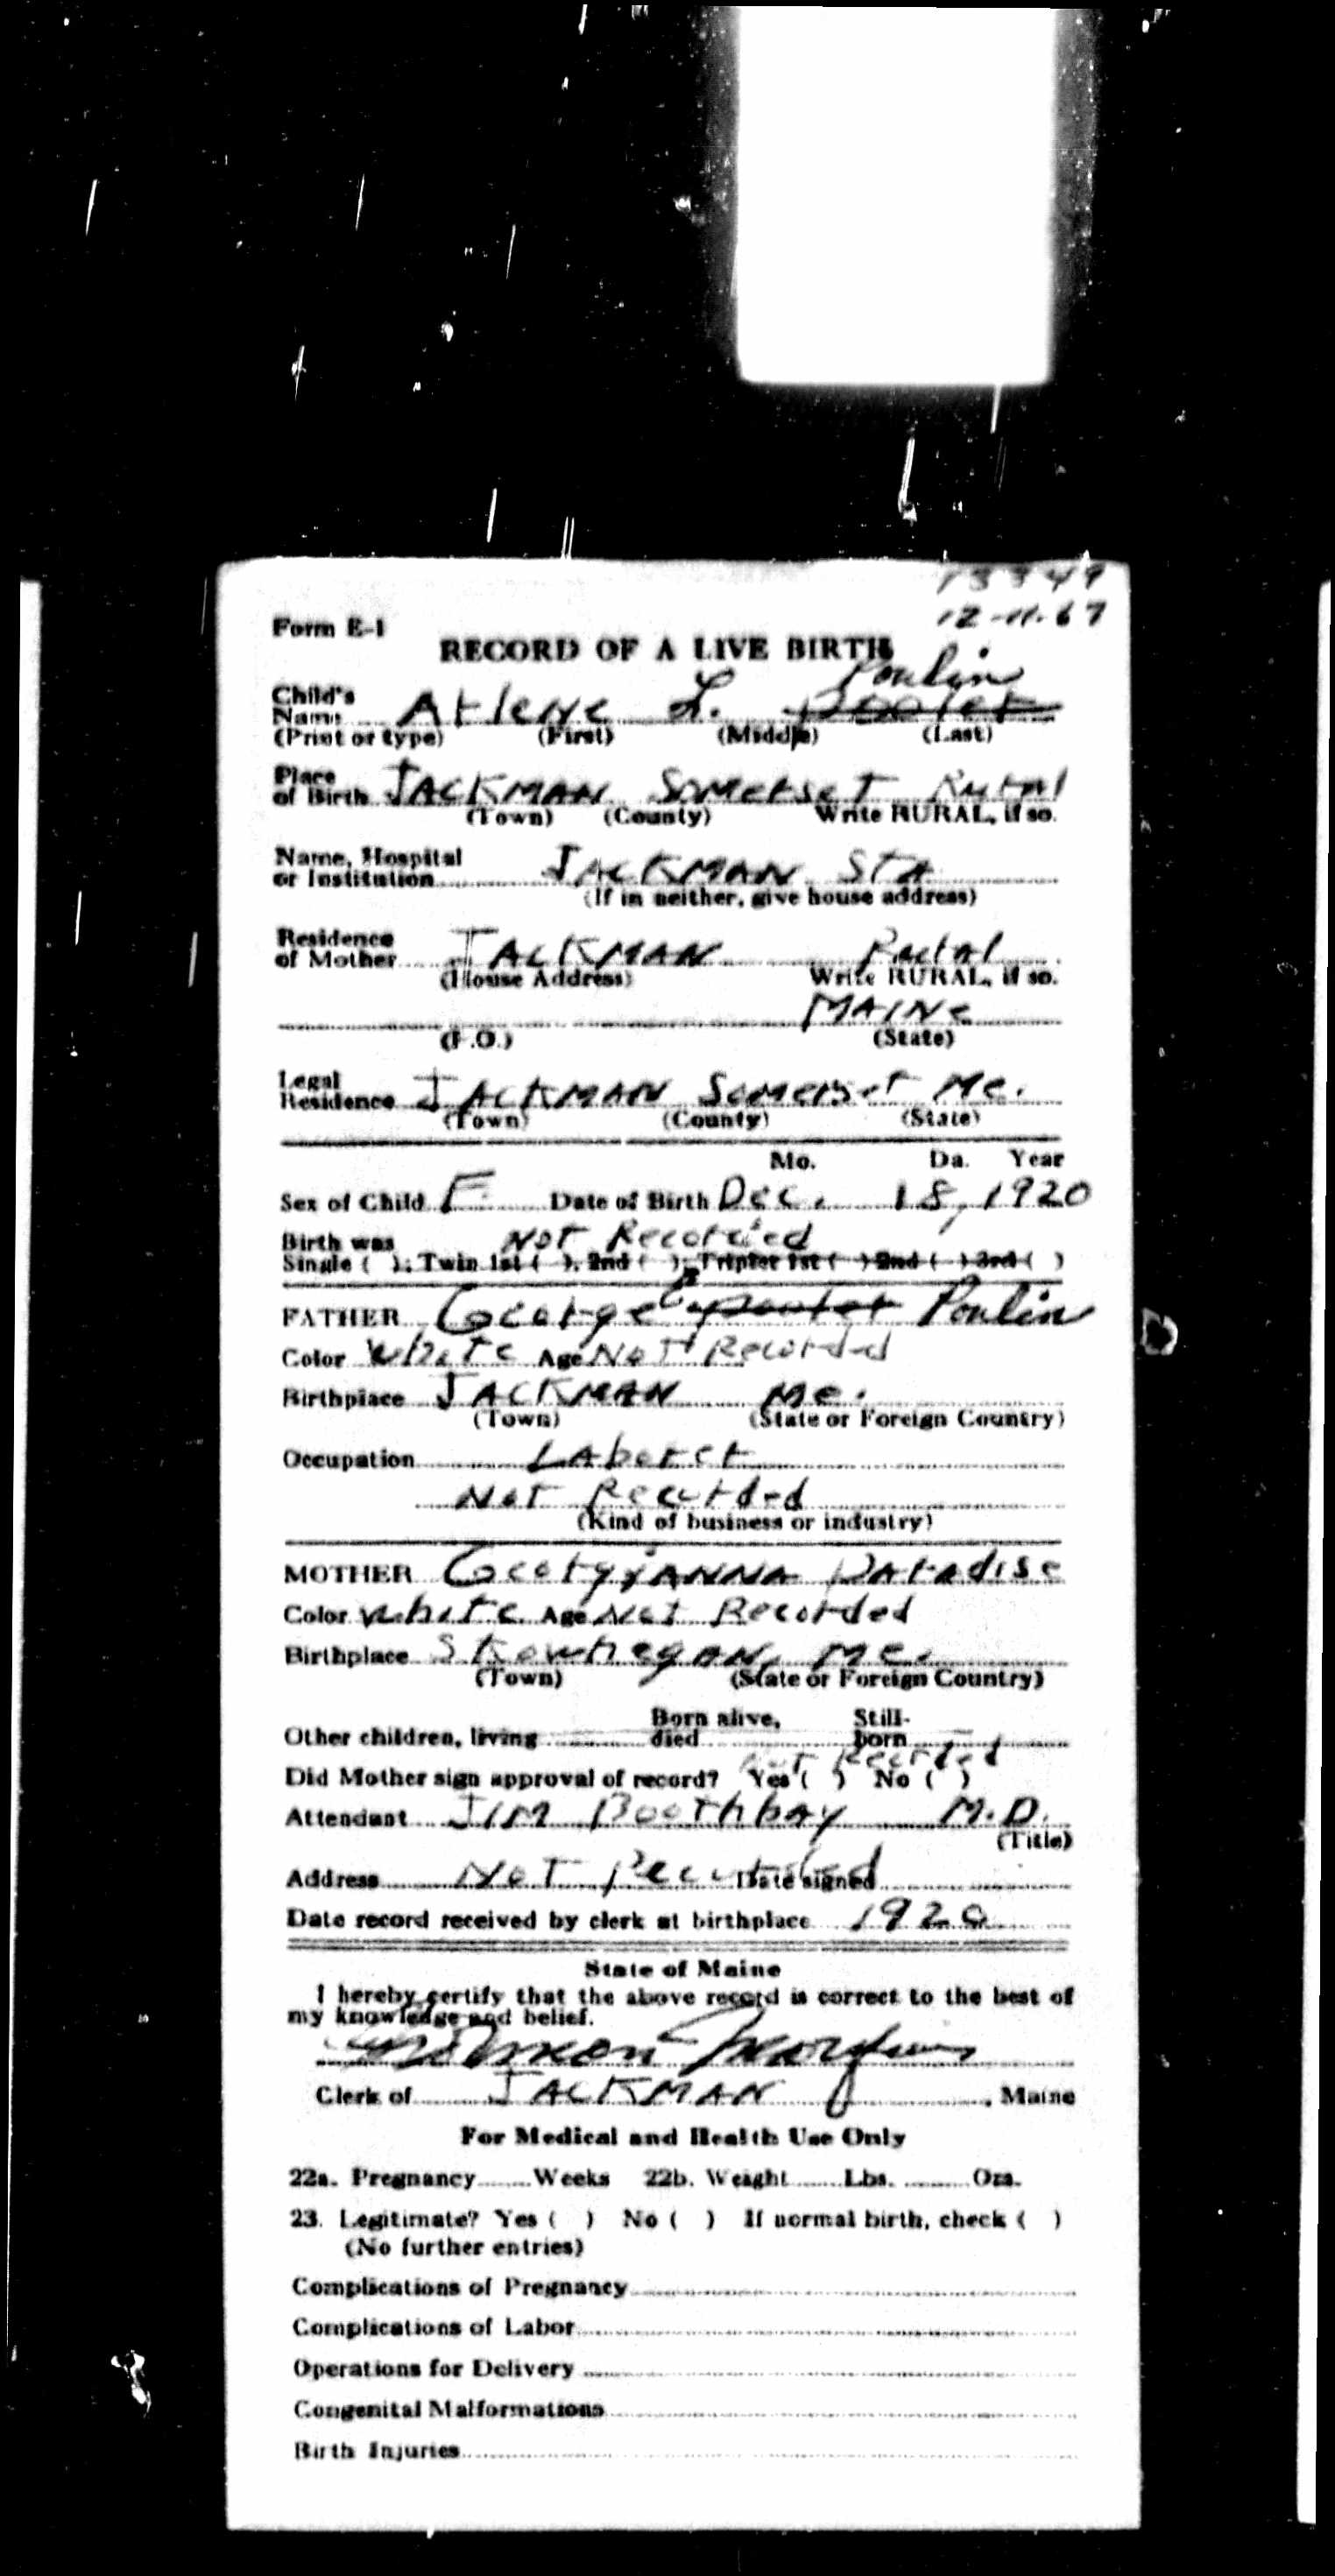 13349
12-11-67
Form E-1
RECORD OF A LIVE BIRTH
Poulin
Child's
Name Arlene L. Pooler
(Print or type) (First) (Middle) (Last)
Place
of Birth JACKMAN Somerset Rural
(Town) (County) Write RURAL, if so.
Name, Hospital
or Institution JACKMAN STA
(If in neither, give house address)
Residence
of Mother JACKMAN Rural
(House Address) Write RURAL, if so.
MAINe
(P.O.) (State)
Legal
Residence JACKMAN Somerset Me.
(Town) (County) (State)
Mo. Da. Year
Sex of Child F. Date of Birth Dec. 18, 1920
Birth was Not Recorded
Single ( ); Twin 1st ( ), 2nd ( ); Triplet 1st ( ) 2nd ( ) 3rd ( )
FATHER George Pooler Poulin
Color White Age Not Recorded
Birthplace JACKMAN Me.
(Town) (State or Foreign Country)
Occupation Laborer
Not Recorded
(Kind of business or industry)
MOTHER GeorgyiANNA Paradise
Color White Age Not Recorded
Birthplace SkowhegAN, Me.
(Town) (State or Foreign Country)
Born alive, Still-
Other children, living died born
Not Recorded
Did Mother sign approval of record? Yes ( ) No ( )
Attendant JIM Boothbay M.D.
(Title)
Address Not Recorded Date signed
Date record received by clerk at birthplace 1920
State of Maine
I hereby certify that the above record is correct to the best of
my knowledge and belief.
Clerk of JACKMAN, Maine
For Medical and Health Use Only
22a. Pregnancy Weeks 22b. Weight Lbs. Ozs.
23. Legitimate? Yes ( ) No ( ) If normal birth, check ( )
(No further entries)
Complications of Pregnancy
Complications of Labor
Operations for Delivery
Congenital Malformations
Birth Injuries